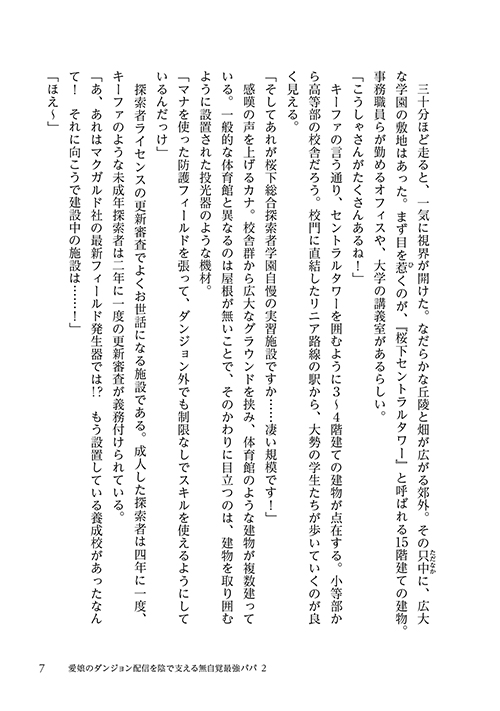 三十分ほど走ると、一気に視界が開けた。なだらかな丘陵と畑が広がる郊外。その只中に、広大
な学園の敷地はあった。まず目を惹くのが、『桜下セントラルタワー』と呼ばれる15階建ての建物。
事務職員らが勤めるオフィスや、大学の講義室があるらしい。
「こうしゃさんがたくさんあるね！」
キーファの言う通り、セントラルタワーを囲むように３～４階建ての建物が点在する。小等部か
ら高等部の校舎だろう。校門に直結したリニア路線の駅から、大勢の学生たちが歩いていくのが良
く見える。
「そしてあれが桜下総合探索者学園自慢の実習施設ですか……凄い規模です！」
感嘆の声を上げるカナ。校舎群から広大なグラウンドを挟み、体育館のような建物が複数建って
いる。一般的な体育館と異なるのは屋根が無いことで、そのかわりに目立つのは、建物を取り囲む
ように設置された投光器のような機材。
「マナを使った防護フィールドを張って、ダンジョン外でも制限なしでスキルを使えるようにして
いるんだっけ」
探索者ライセンスの更新審査でよくお世話になる施設である。成人した探索者は四年に一度、
キーファのような未成年探索者は二年に一度の更新審査が義務付けられている。
「あ、あれはマクガルド社の最新フィールド発生器では!?　もう設置している養成校があったなん
て！　それに向こうで建設中の施設は……！」
「ほえ～」
7　愛娘のダンジョン配信を陰で支える無自覚最強パパ 2